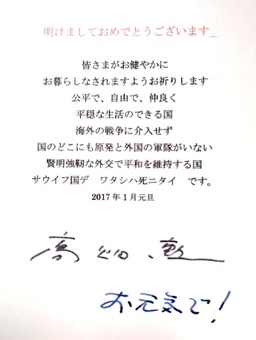 明けましておめでとうございます
皆さまがお健やかに
お暮らしなされますようお祈りします
公平で、自由で、仲良く
平穏な生活のできる国
海外の戦争に介入せず
国のどこにも原発と外国の軍隊がいない
賢明強靭な外交で平和を維持する国
サウイフ国デ　ワタシハ死ニタイ　です。
2017年1月元旦
お元気で!